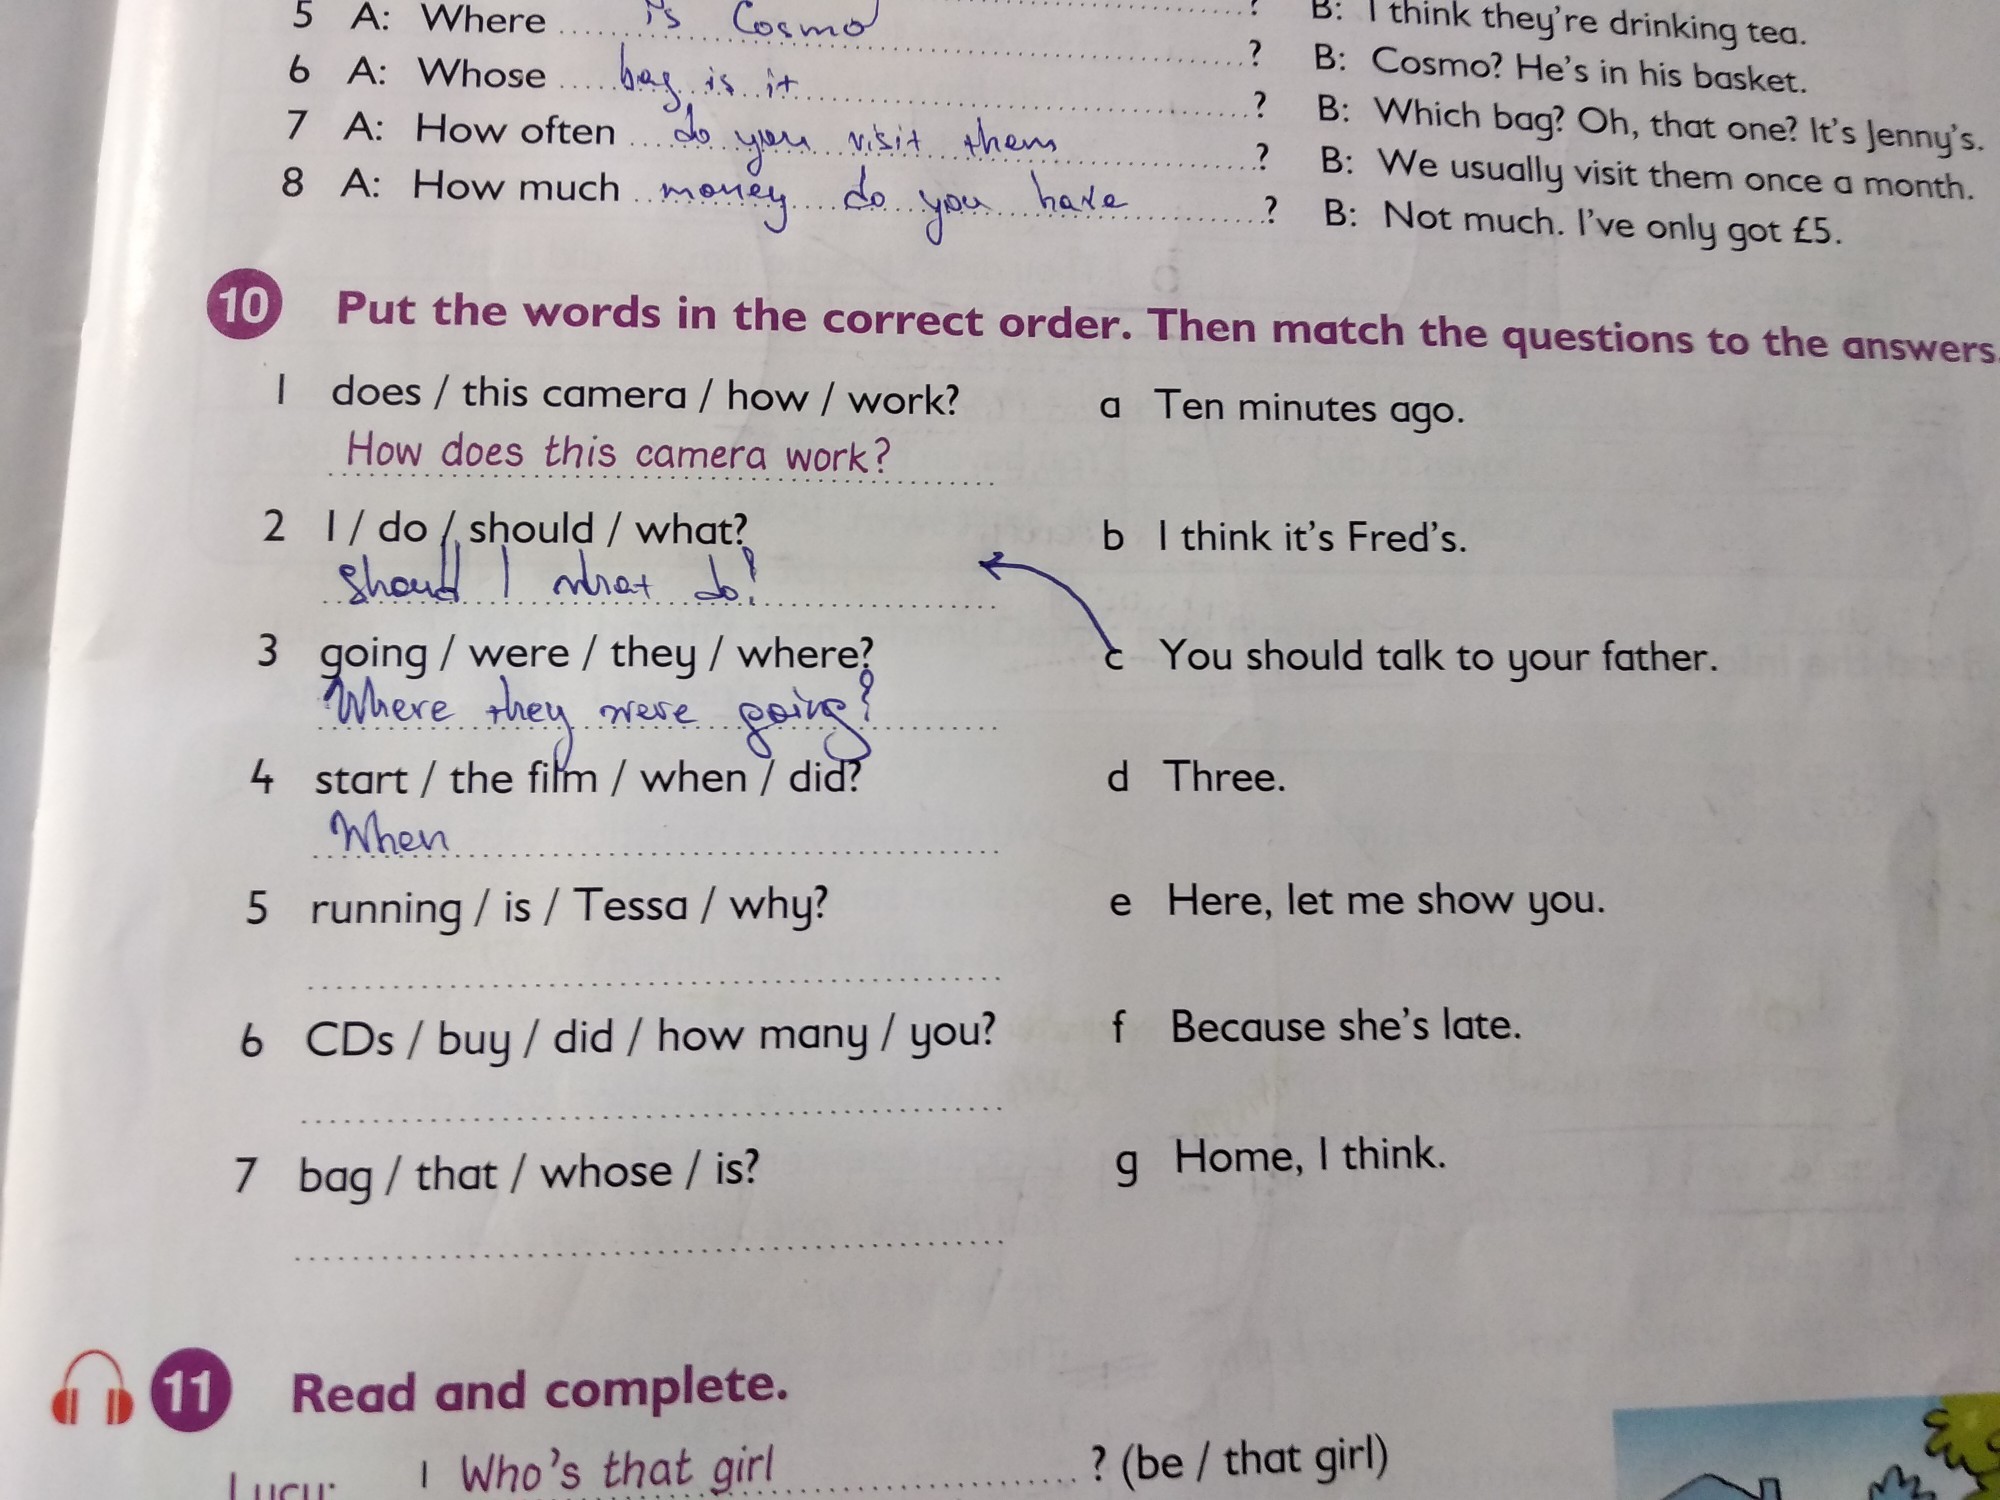 5 A: Where is Cosmo ? B: I think they're drinking tea.
6 A: Whose bag is it ? B: Cosmo? He's in his basket.
7 A: How often do you visit them ? B: Which bag? Oh, that one? It's Jenny's.
8 A: How much money do you have ? B: We usually visit them once a month.
? B: Not much. I've only got £5.
10 Put the words in the correct order. Then match the questions to the answers.
1 does / this camera / how / work? a Ten minutes ago.
How does this camera work?
2 I / do / should / what? b I think it's Fred's.
Should I what do?
3 going / were / they / where? c You should talk to your father.
Where they were going?
4 start / the film / when / did? d Three.
When
5 running / is / Tessa / why? e Here, let me show you.
6 CDs / buy / did / how many / you? f Because she's late.
7 bag / that / whose / is? g Home, I think.
11 Read and complete.
Lucy: 1 Who's that girl ? (be / that girl)